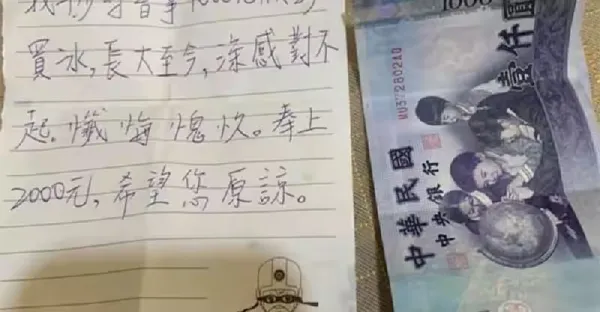 買冰,長大至今,深感對不
起。懺悔愧疚。奉上
2000元,希望您原諒。
1000
壹仟圓
中華民國
中央銀行